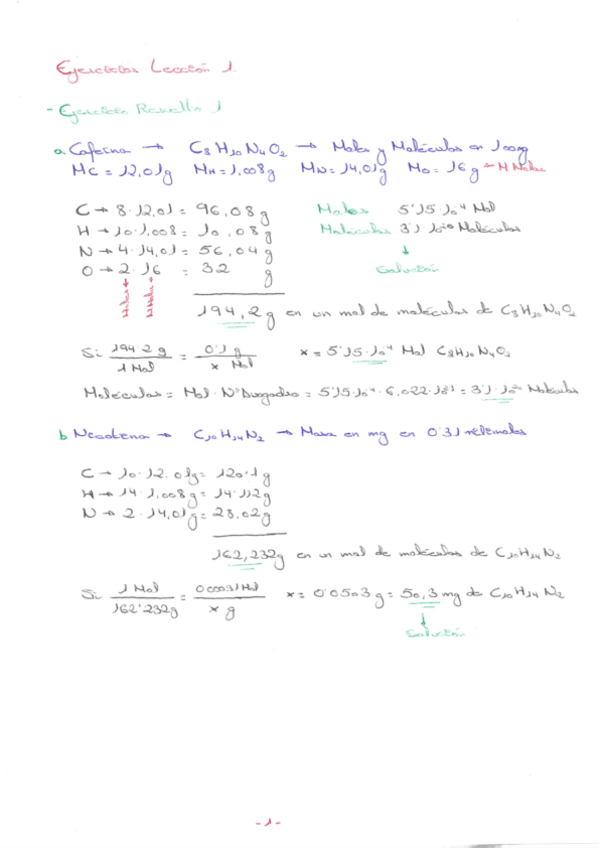 Ejercicios Lección 1.
- Ejercicio Resuelto 1
a Cafeína → C8 H10 N4 O2 → Moles y Moléculas en 100mg
MC = 12,01g MH = 1,008g MN = 14,01g MO = 16g
C → 8·12,01 = 96,08g Moles 5'15·10⁻⁴ Mol
H → 10·1,008 = 10,08g Moléculas 3'1·10²⁰ Moléculas
N → 4·14,01 = 56,04g ↓
O → 2·16 = 32 g Solución
Moles
194,2g en un mol de moléculas de C8H10N4O2
Si 194'2 g / 1 Mol = 0'1 g / x Mol x = 5'15·10⁻⁴ Mol C8H10N4O2
Moléculas = Mol · Nº Avogadro = 5'15·10⁻⁴ · 6,022·10²³ = 3'1·10²⁰ Moléculas
b Nicotina → C10H14N2 → Masa en mg en 0'31 milimoles
C → 10·12.01g = 120'1g
H → 14·1,008g = 14'112g
N → 2·14,01g = 28,02g
162,232g en un mol de moléculas de C10H14N2
Si 1 Mol / 162'232g = 0'00031 Mol / x g x = 0'0503g = 50,3 mg de C10H14N2
↓
Solución
- 1 -